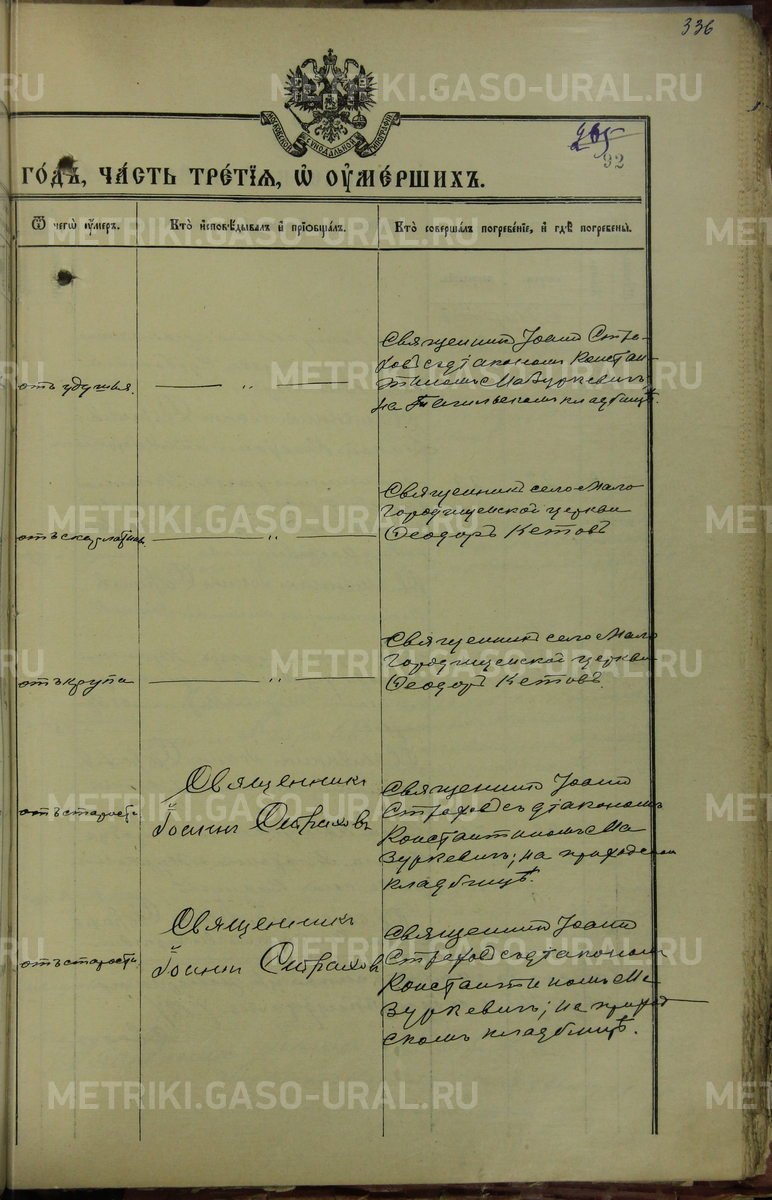 336
МОСКОВСКОЙ СѴНОДАЛЬНОЙ ТИПОГРАФІИ
265
92
го́дъ, ча́сть тре́тїѧ, ѡ҆ ᲂу҆ме́ршихъ.
Ѿ чегѡ̀ ᲂу҆́меръ.
Кто̀ и҆сповѣ́дывалъ и҆ прїѡбща́лъ.
Кто̀ соверша́лъ погребе́нїе, и҆ гдѣ̀ погребены̀.
отъ удушья.
— „ —
Священникъ Іоаннъ Стра-
ховъ съ діакономъ Констан-
тиномъ Мазуркевичъ,
на Тагильскомъ кладбищѣ.
отъ скарлатины.
— „ —
Священникъ село Мало
Городищенской церкви
Ѳеодоръ Кетовъ
отъ крупа
— „ —
Священникъ село Мало
Городищенской церкви
Ѳеодоръ Кетовъ.
отъ старости
Священникъ
Іоаннъ Страховъ
Священникъ Іоаннъ
Страховъ съ діакономъ
Константиномъ Ма
зуркевичъ; на приходском
кладбищѣ.
отъ старости.
Священникъ
Іоаннъ Страховъ
Священникъ Іоаннъ
Страховъ съ діакономъ
Константиномъ Ма
зуркевичъ; на приход
скомъ кладбищѣ.
METRIKI.GASO-URAL.RU